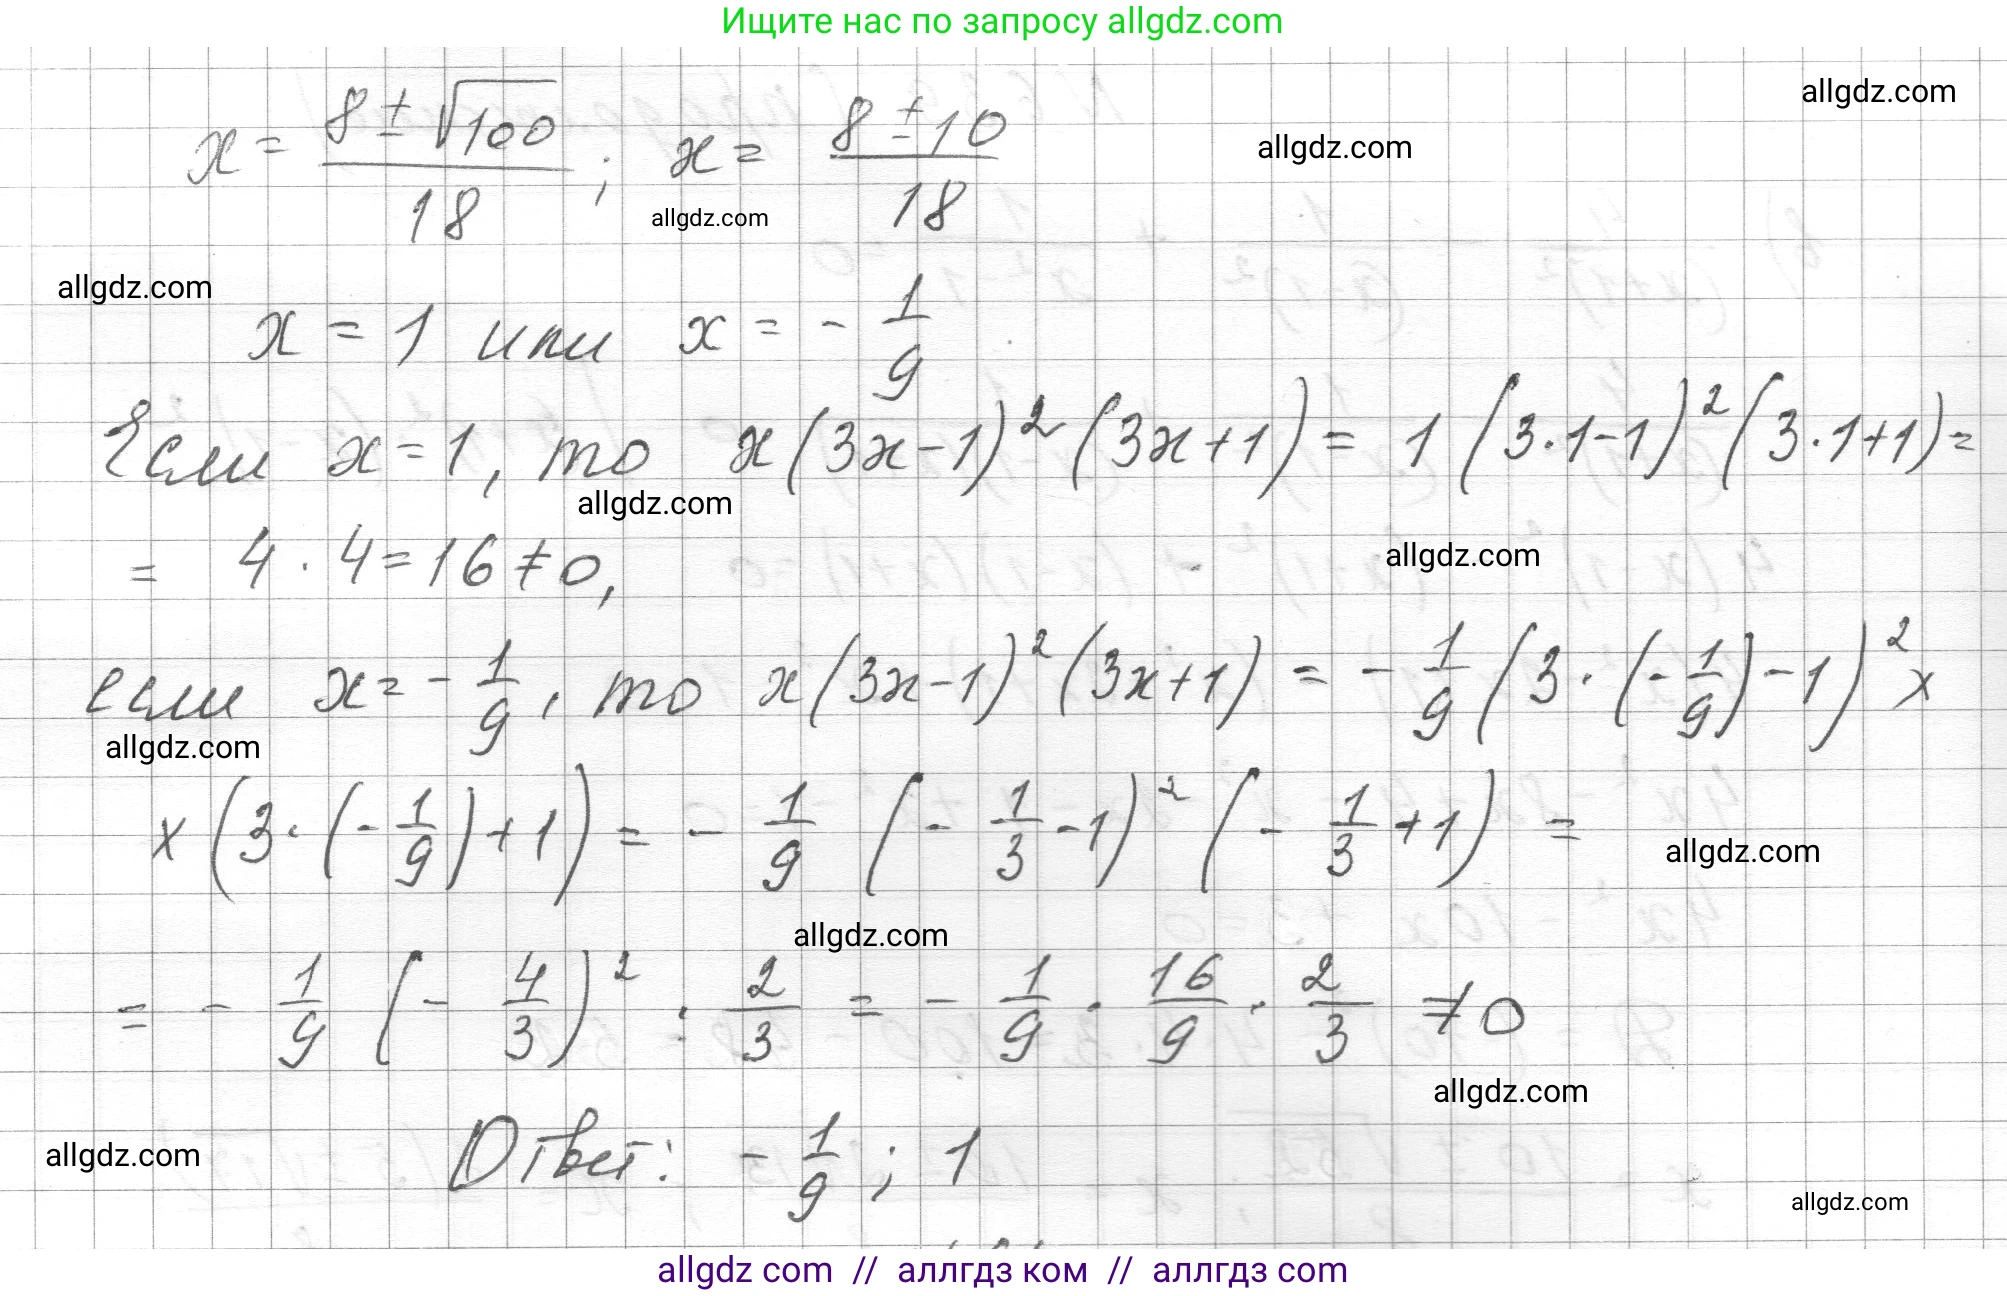 Ищите нас по запросу allgdz.com
allgdz.com
x = (8 ± √100)/18 ; x = (8 ± 10)/18
allgdz.com
allgdz.com
allgdz.com
x = 1 или x = - 1/9
Если x = 1, то x(3x-1)²(3x+1) = 1(3·1-1)²(3·1+1) =
allgdz.com
= 4 · 4 = 16 ≠ 0,
allgdz.com
если x = - 1/9, то x(3x-1)²(3x+1) = - 1/9 (3·(-1/9)-1)² ×
allgdz.com
× (3·(-1/9)+1) = - 1/9 (- 1/3 - 1)² (- 1/3 + 1) =
allgdz.com
allgdz.com
= - 1/9 (- 4/3)² · 2/3 = - 1/9 · 16/9 · 2/3 ≠ 0
allgdz.com
Ответ: - 1/9 ; 1
allgdz.com
allgdz.com
allgdz com // аллгдз ком // аллгдз com